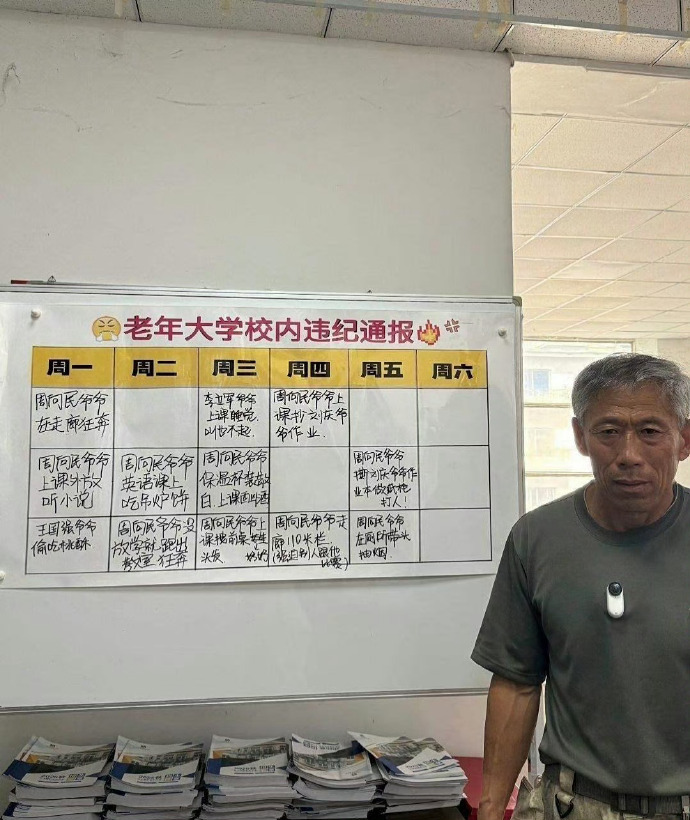 老年大学校内违纪通报
周一 周二 周三 周四 周五 周六
周向民爷爷
在走廊狂奔
李立军爷爷
上课睡觉
叫也不起.
周向民爷爷上
课抄刘庆爷
爷作业.
周向民爷爷
上课外放
听小说
周向民爷爷
英语课上
吃吊炉饼
周向民爷爷
保温杯装散
白 上课
周向民爷爷
撕刘庆爷爷作
业本做纸枪
打人!
王国强爷爷
偷吃
周向民爷爷没
放学就跑出
教室狂奔
周向民爷爷上
课揪前桌女生
头发
周向民爷爷走
廊110米栏
(强迫别人跟他
比赛)
周向民爷爷
在厕所带头
抽烟.